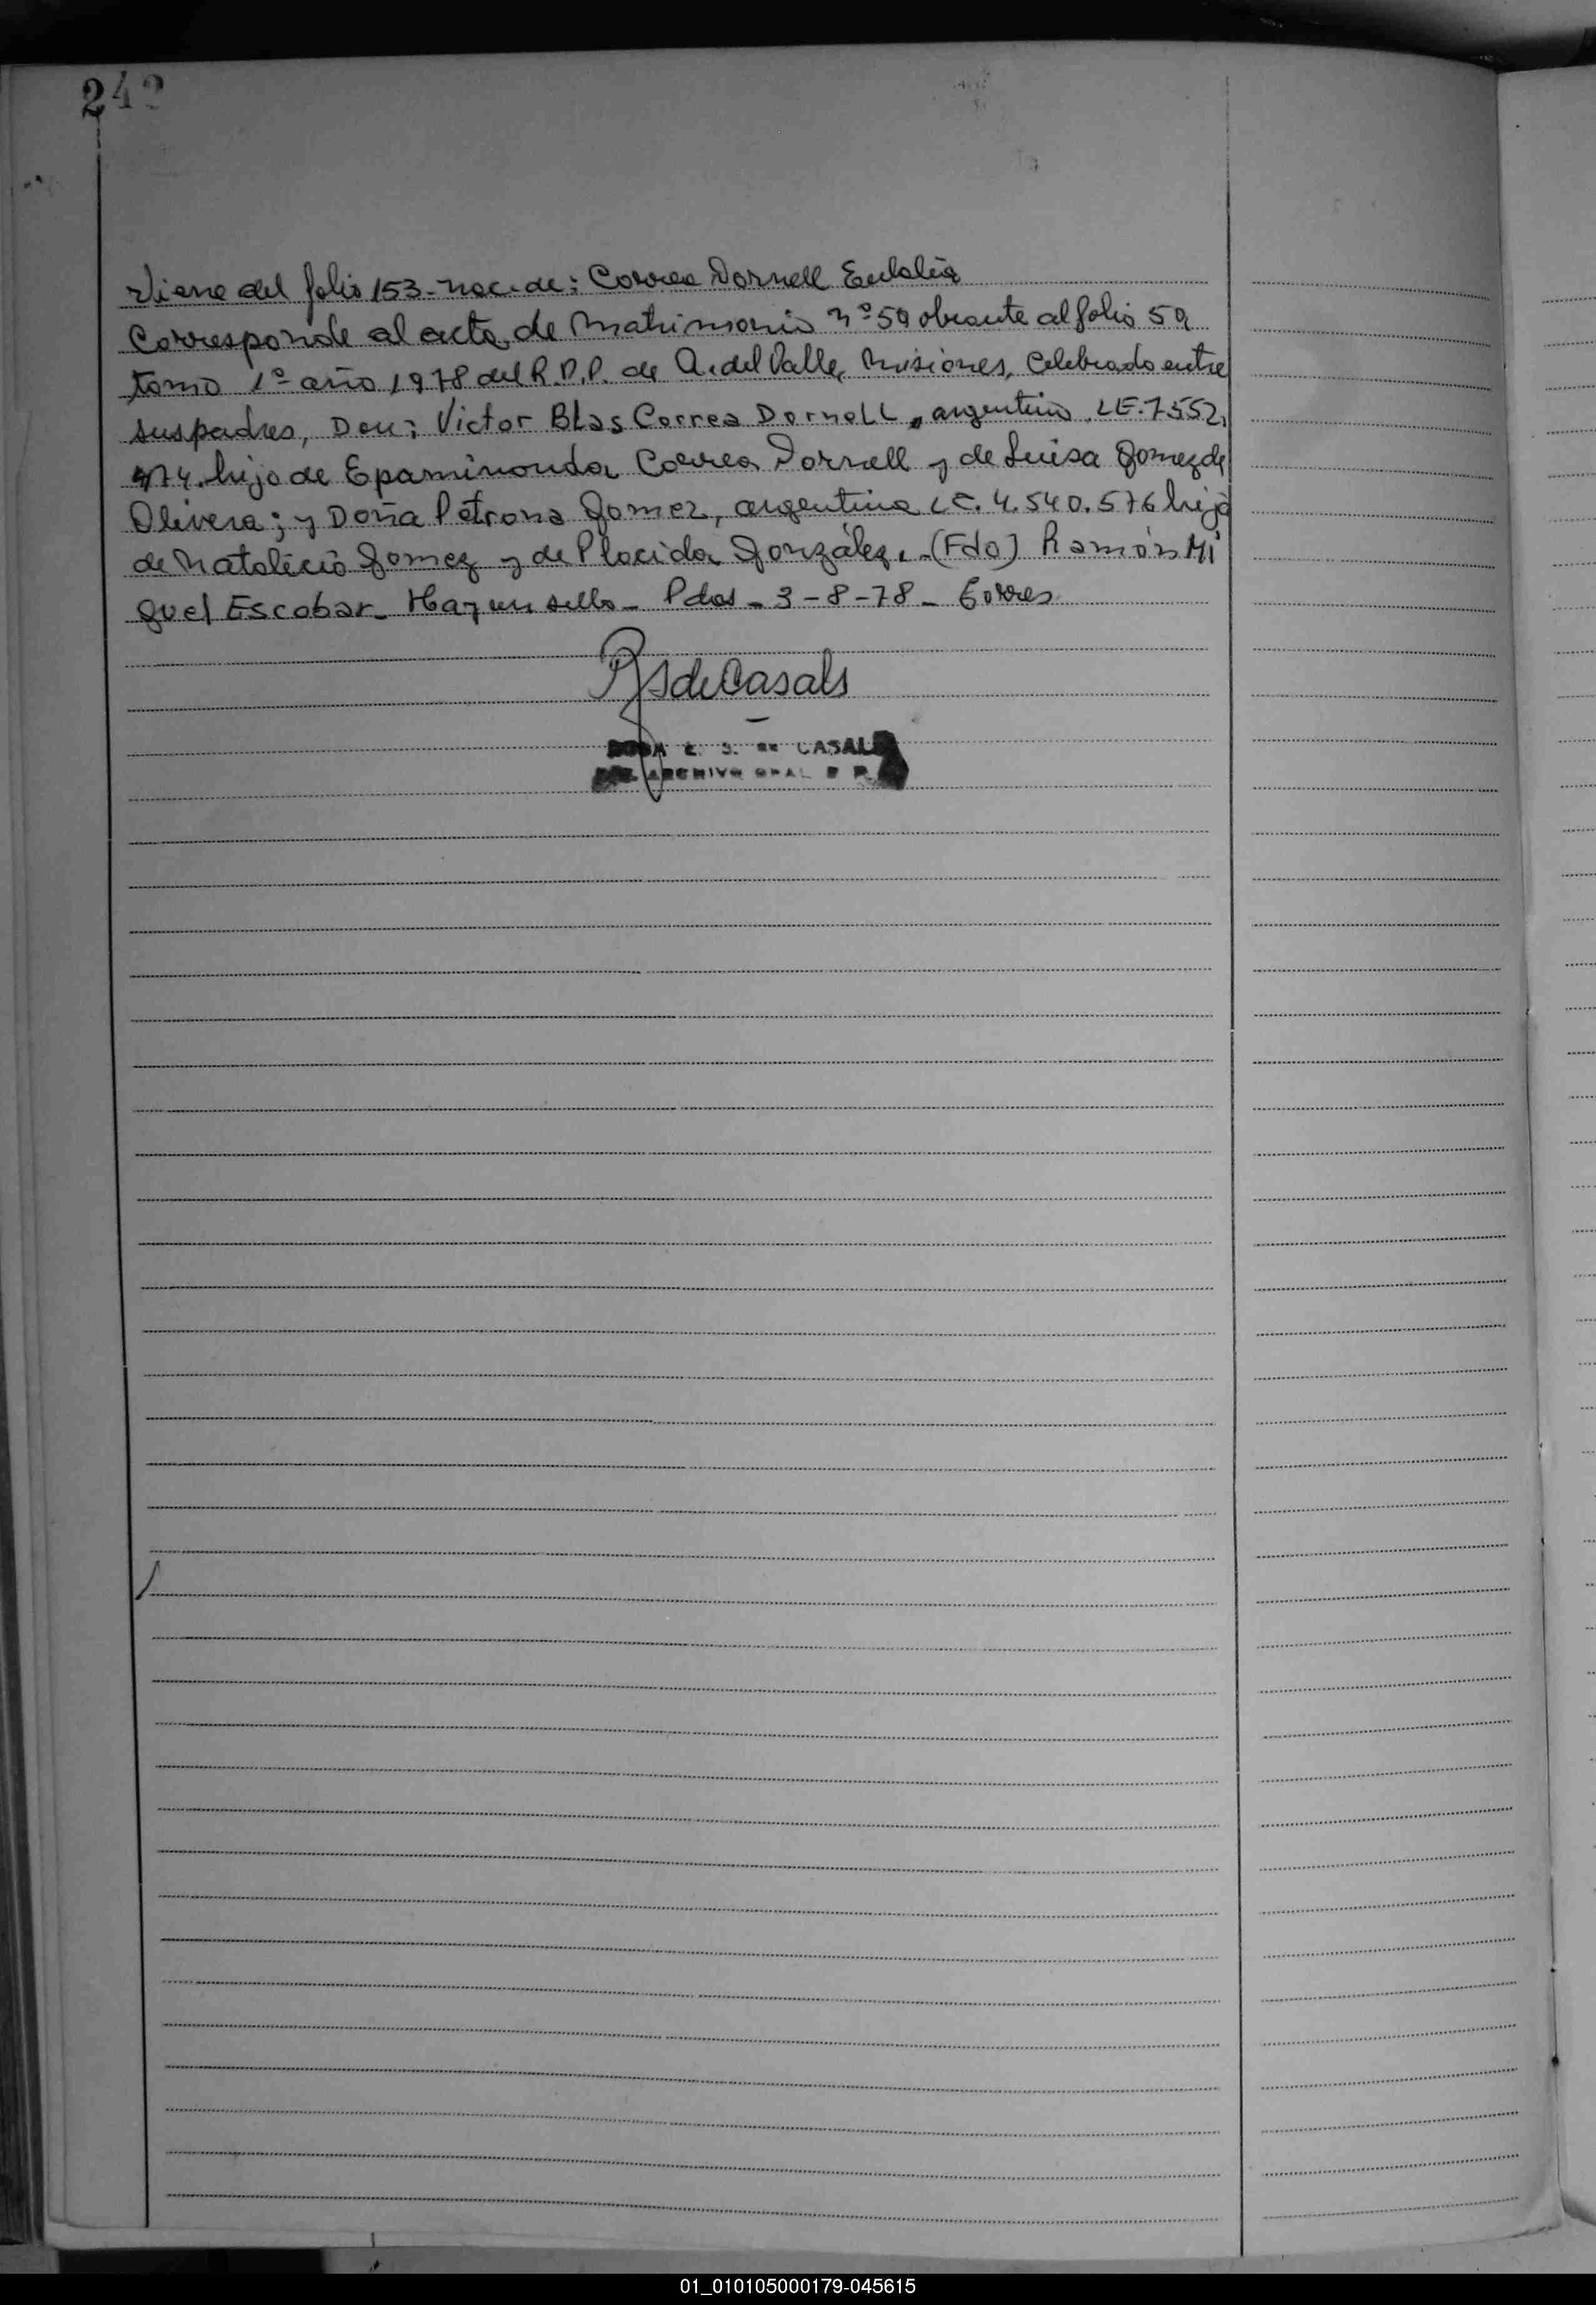 242
Viene del folio 153 - Nac. de: Correa Dornell Eulalia
Corresponde al acta de Matrimonio nº 59 obrante al folio 59
tomo 1º año 1978 del R.D.P. de A. del Valle, Misiones, Celebrado entre
sus padres, Don: Victor Blas Correa Dornell, argentino LE. 7.552.
474. hijo de Epaminonda Correa Dornell y de Luisa Gomez de
Olivera; y Doña Petrona Gomez, argentina LC. 4.540.576 hija
de Natalicio Gomez y de Placida González. - (Fdo) Ramón Mi
guel Escobar - Hay un sello - Pdas - 3-8-78 - Torres
RSdeCasals
ROSA E. S. DE CASALS
ARCHIVO GRAL R P
01_010105000179-045615